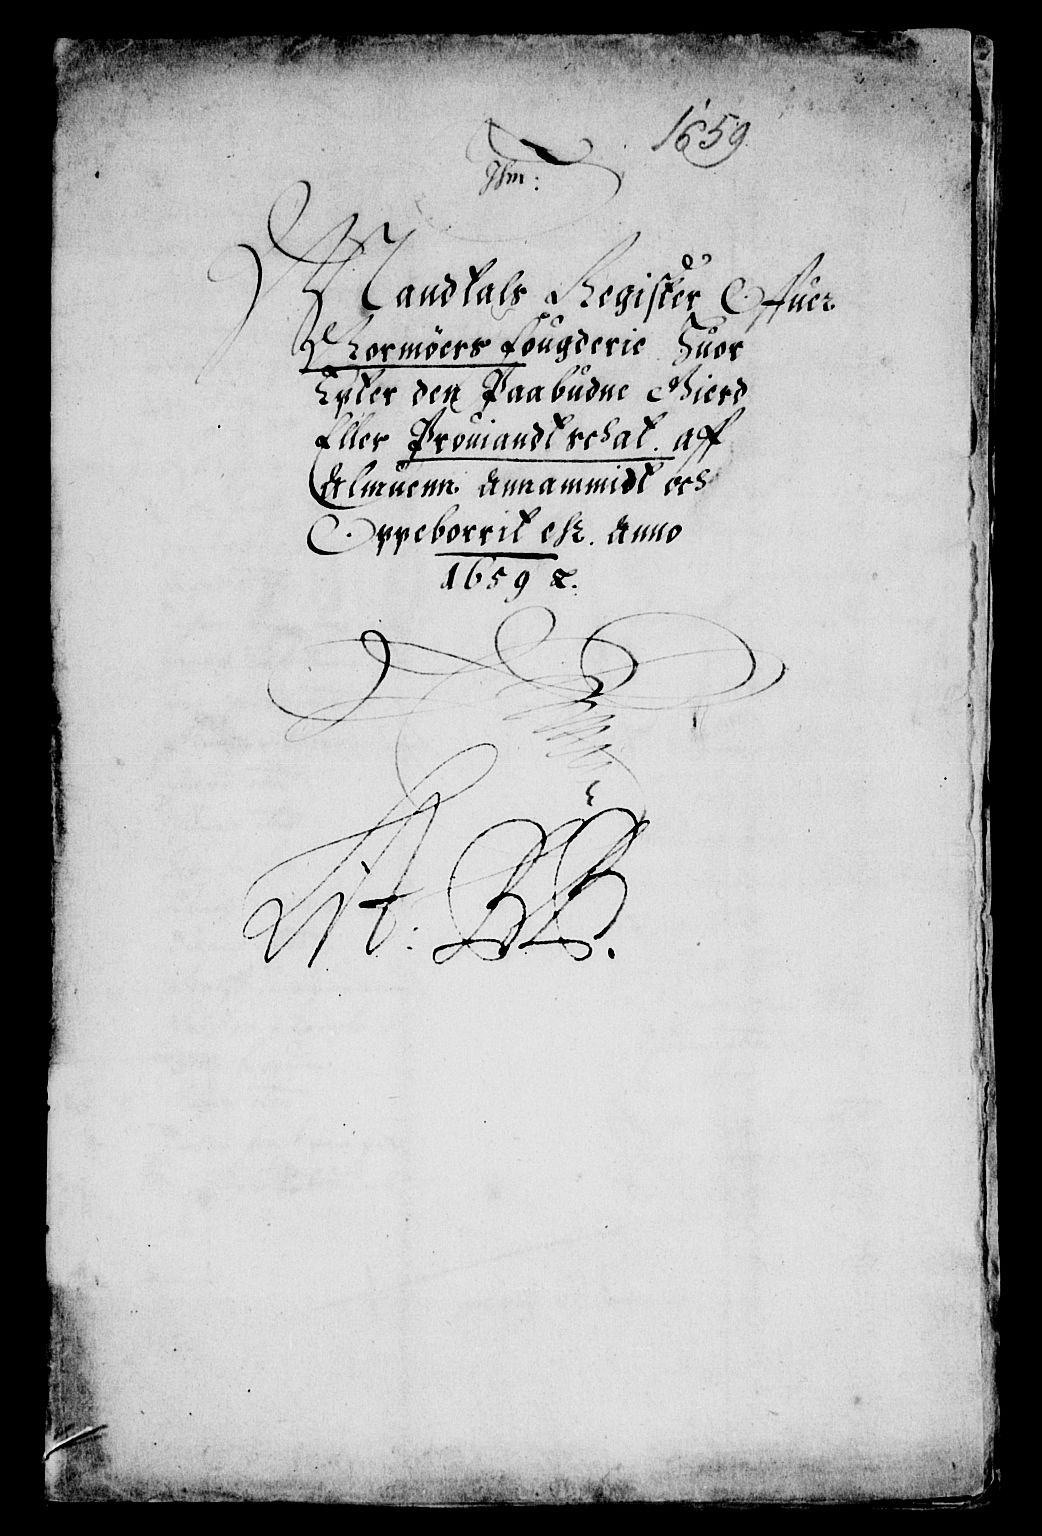 1659
Ihm:
Mandtals Register Offuer
Normöers fougderie Huor
Epter den Paabudne Gierd
Eller Prouiandt schat. aff
Almuenn Annammidt och
Oppeborrit ehr. Anno
1659 &.
Lit: BB.